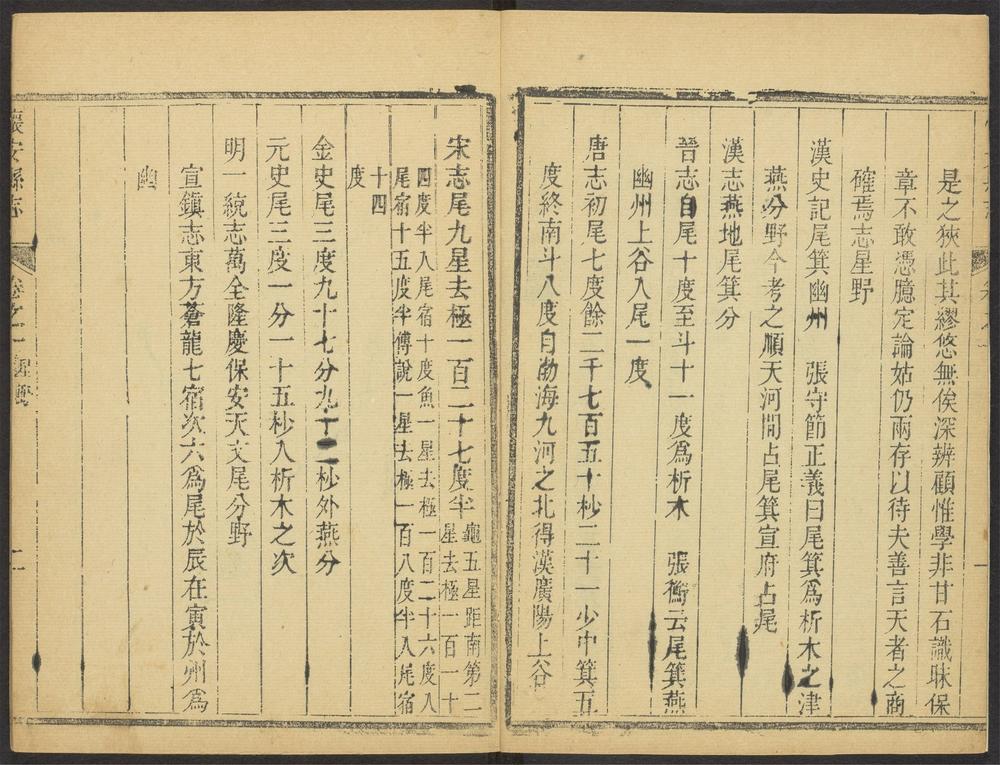 是之狹此其繆悠無俟深辨顧惟學非甘石識昧保
章不敢憑臆定論姑仍兩存以待夫善言天者之商
確焉志星野
漢史記尾箕幽州　張守節正義曰尾箕爲析木之津
燕分野今考之順天河間占尾箕宣府占尾
漢志燕地尾箕分
晉志自尾十度至斗十一度爲析木　張衡云尾箕燕
幽州上谷入尾一度
唐志初尾七度餘二千七百五十杪二十一少中箕五
度終南斗八度自渤海九河之北得漢廣陽上谷
宋志尾九星去極一百二十七度半
龜五星距南第二
星去極一百一十
四度半入尾宿十度魚一星去極一百二十六度入
尾宿十五度半傅說一星去極一百八度半入尾宿
十四
度
金史尾三度九十七分九十二杪外燕分
元史尾三度一分一十五杪入析木之次
明一統志萬全隆慶保安天文尾分野
宣鎭志東方蒼龍七宿次六爲尾於辰在寅於州爲
幽
懷安縣志
卷之一